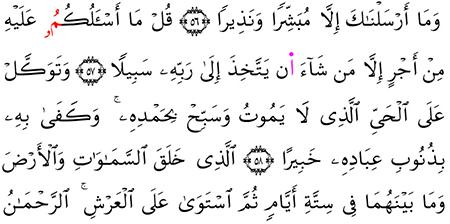 وَمَا أَرْسَلْنَـٰكَ إِلَّا مُبَشِّرًا وَنَذِيرًا ٥٦ قُلْ مَا أَسْـَٔلُكُمُۥ عَلَيْهِ
مِنْ أَجْرٍ إِلَّا مَن شَآءَ ا۬ن يَتَّخِذَ إِلَىٰ رَبِّهِۦ سَبِيلًا ٥٧ وَتَوَكَّلْ
عَلَى الْحَيِّ الَّذِى لَا يَمُوتُ وَسَبِّحْ بِحَمْدِهِۦ ۚ وَكَفَىٰ بِهِۦ
بِذُنُوبِ عِبَادِهِۦ خَبِيرًا ٥٨ الَّذِى خَلَقَ السَّمَـٰوَٰتِ وَالْأَرْضَ
وَمَا بَيْنَهُمَا فِى سِتَّةِ أَيَّامٍ ثُمَّ اسْتَوَىٰ عَلَى الْعَرْشِ ۚ الرَّحْمَـٰنُ